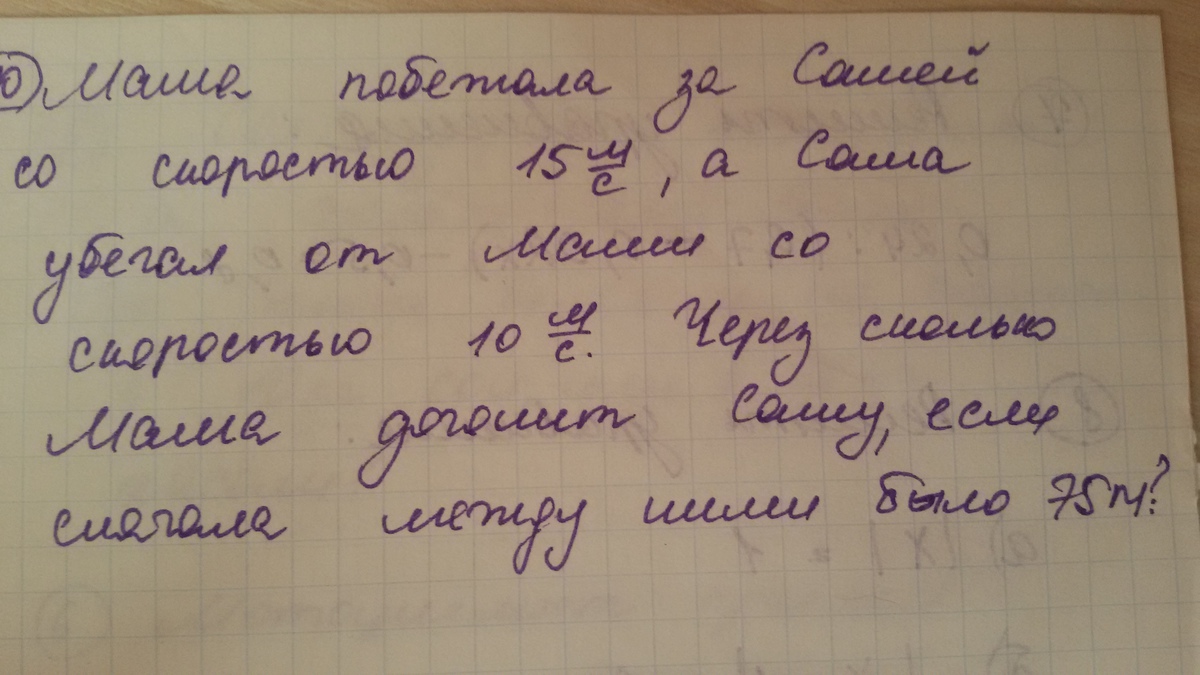 10) Маша побежала за Сашей
со скоростью 15 м/с, а Саша
убегал от Маши со
скоростью 10 м/с. Через сколько
Маша догонит Сашу, если
сначала между ними было 75м?